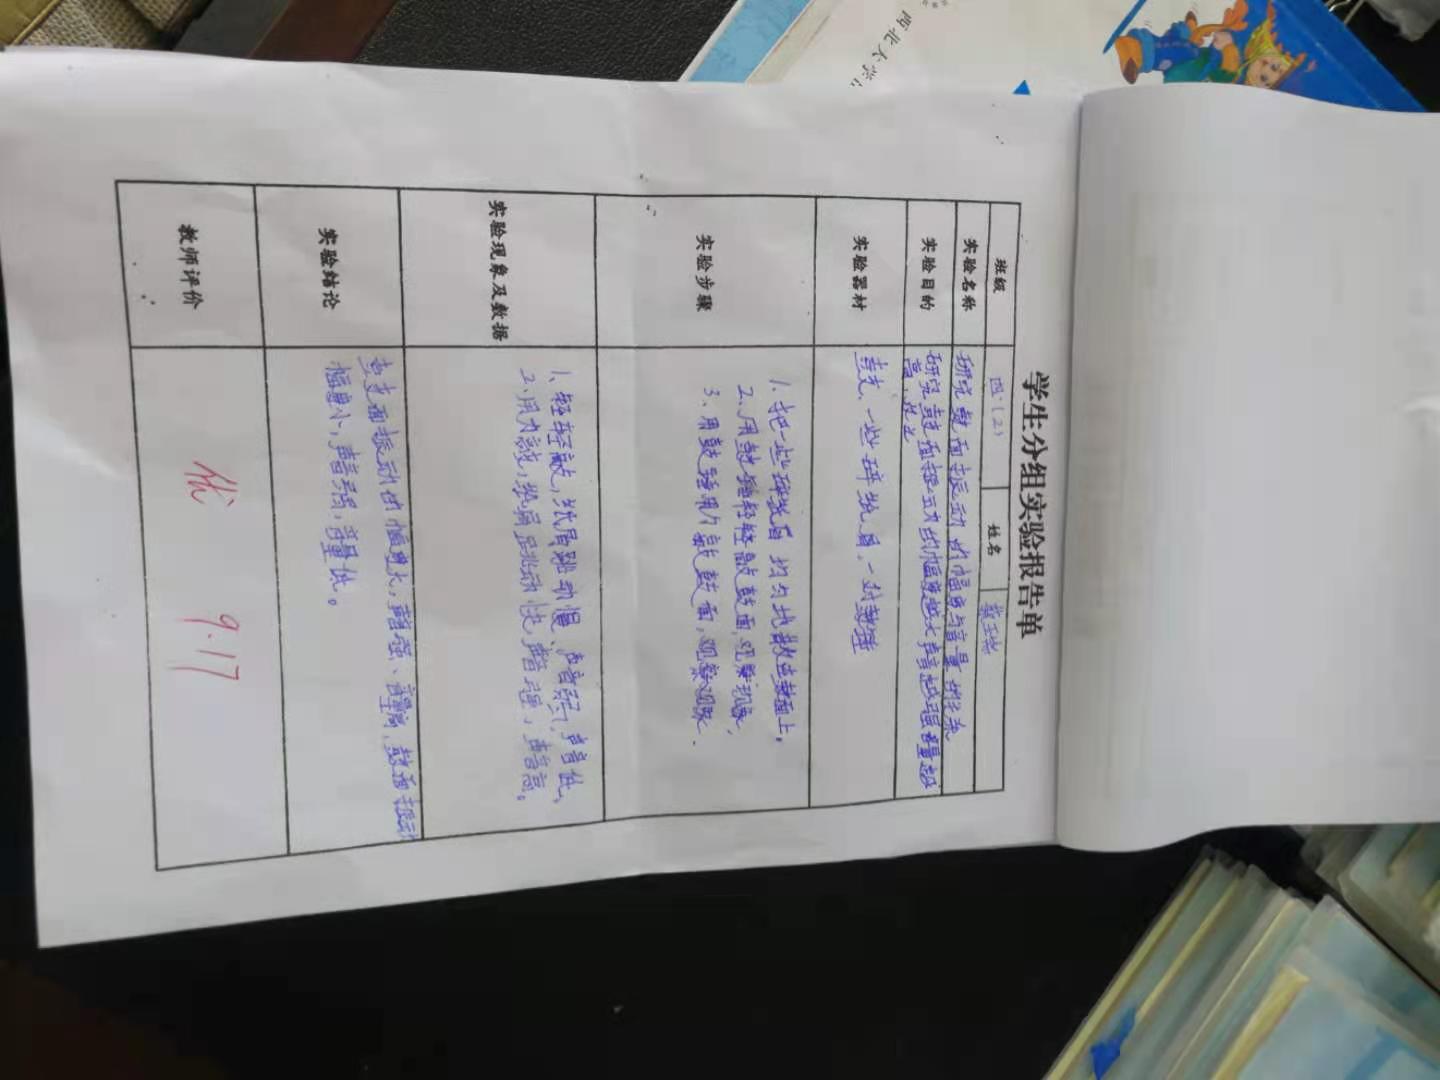 西北大学
学生分组实验报告单
班级 四(2) 姓名
实验名称 研究鼓面振动的幅度与音量的关系
实验目的 研究鼓面振动的幅度越大声音越强音量越
高,
实验器材 鼓、一些碎纸屑,一对鼓锤
实验步骤
1、把一些碎纸屑均匀地散在鼓面上。
2、用鼓锤轻轻敲鼓面,观察现象.
3、用鼓锤用力敲鼓面,观察现象.
实验现象及数据
1、轻轻敲,纸屑跳动慢、声音弱,声音低、
2、用力敲,纸屑跳动快,声音强,声音高。
实验结论
鼓面振动的幅度大,声音强、音量高,鼓面振动
幅度小,声音弱,音量低。
教师评价 优 9.17